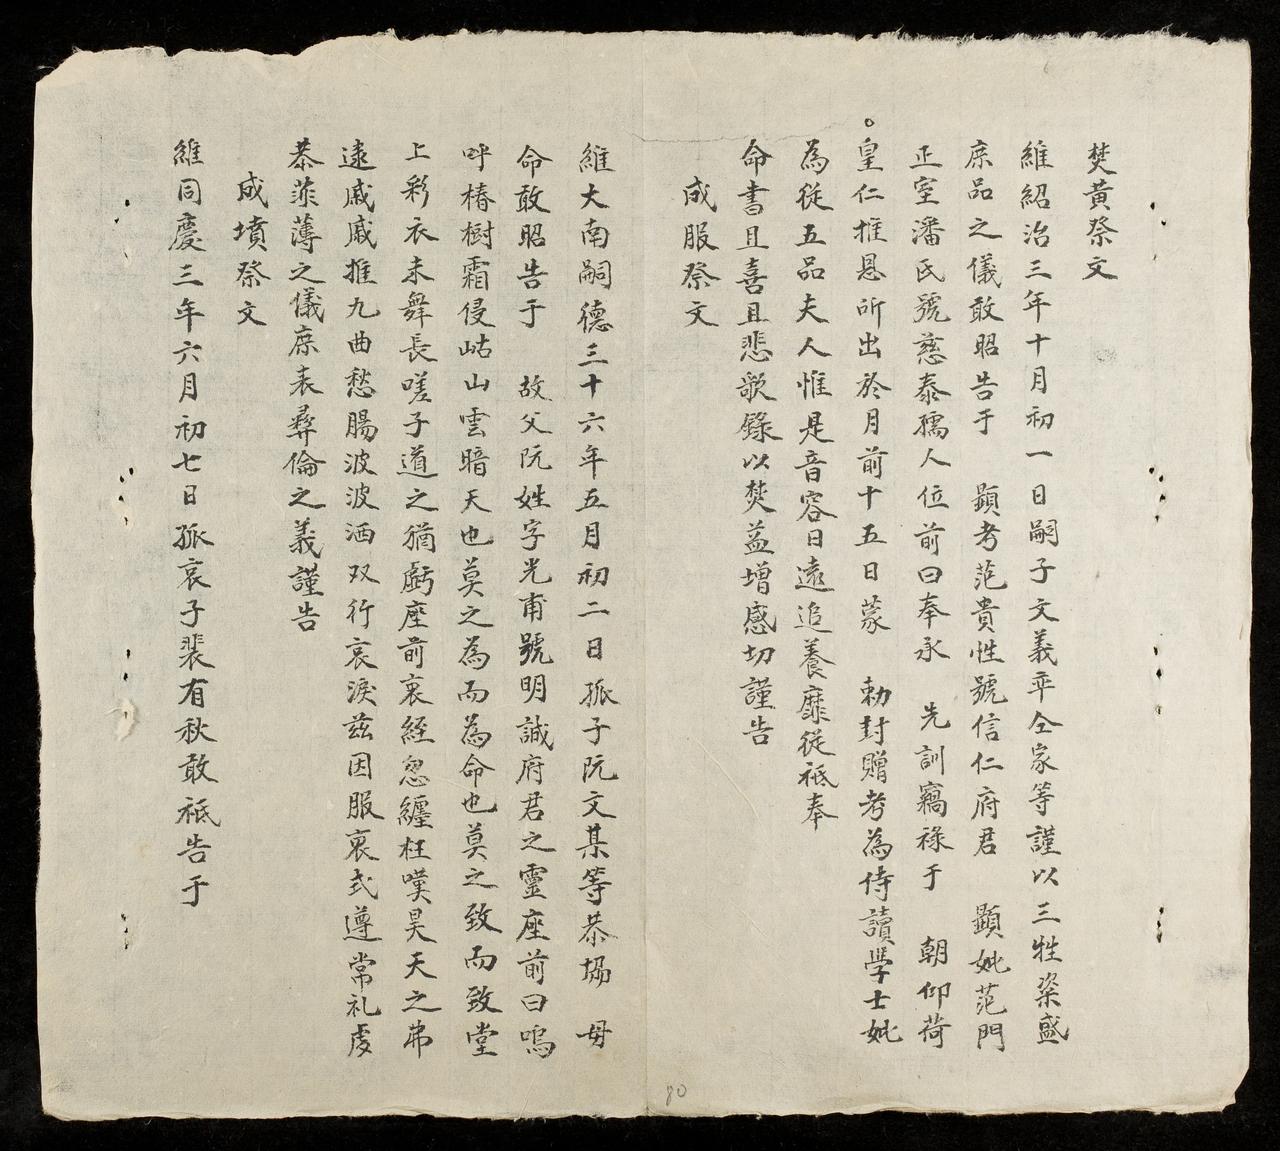 焚黃祭文
維紹治三年十月初一日嗣子文義平仝家等謹以三牲粢盛
庶品之儀敢昭告于 顯考范貴性號信仁府君 顯妣范門
正室潘氏號慈泰孺人位前曰奉承 先訓竊祿于 朝仰荷
皇仁推恩所出於月前十五日蒙 勅封贈考為侍讀學士妣
為從五品夫人惟是音容日遠追養靡從祗奉
命書且喜且悲歌錄以焚益增感切謹告
成服祭文
維大南嗣德三十六年五月初二日孤子阮文某等恭協 母
命敢昭告于 故父阮姓字光甫號明誠府君之靈座前曰嗚
呼椿樹霜侵岵山雲暗天也莫之為而為命也莫之致而致堂
上彩衣未舞長嗟子道之猶虧座前衰絰忽纏枉嘆昊天之弗
遠戚戚推九曲愁腸波波洒双行哀淚茲因服衰式遵常礼虔
恭菲薄之儀庶表彜倫之義謹告
成墳祭文
維同慶三年六月初七日孤哀子裴有秋敢祗告于
80